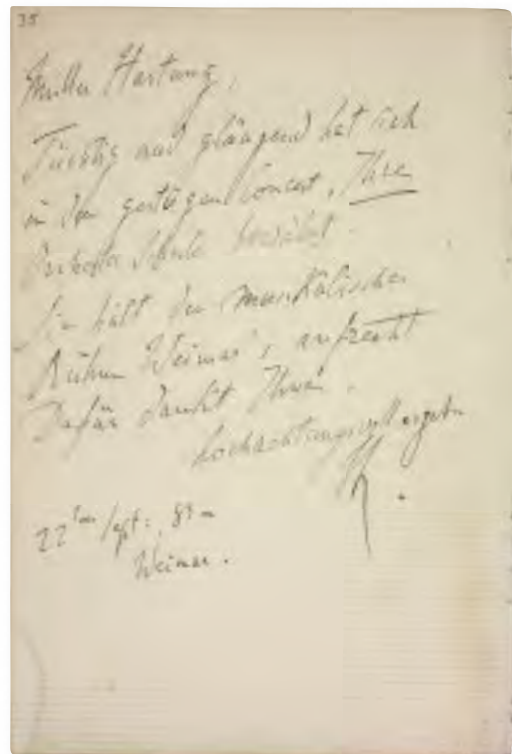 35
Müller Hartung,
Tüchtig und glänzend hat sich
in dem gestrigen Concert, Ihre
Orchester Schule bewährt.
Sie hält den musikalischen
Ruhm Weimar's, aufrecht
Dafür dankt Ihnen,
hochachtungsvoll ergeben
22ten Sept: 83
Weimar.